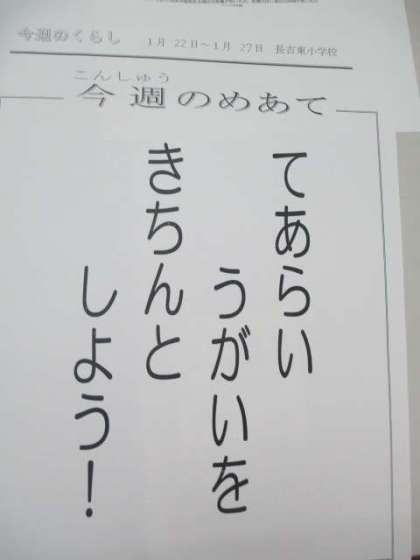 今週のくらし 1月 22日～1月 27日 長吉東小学校
こんしゅう
今週のめあて
てあらい
うがいを
きちんと
しよう！